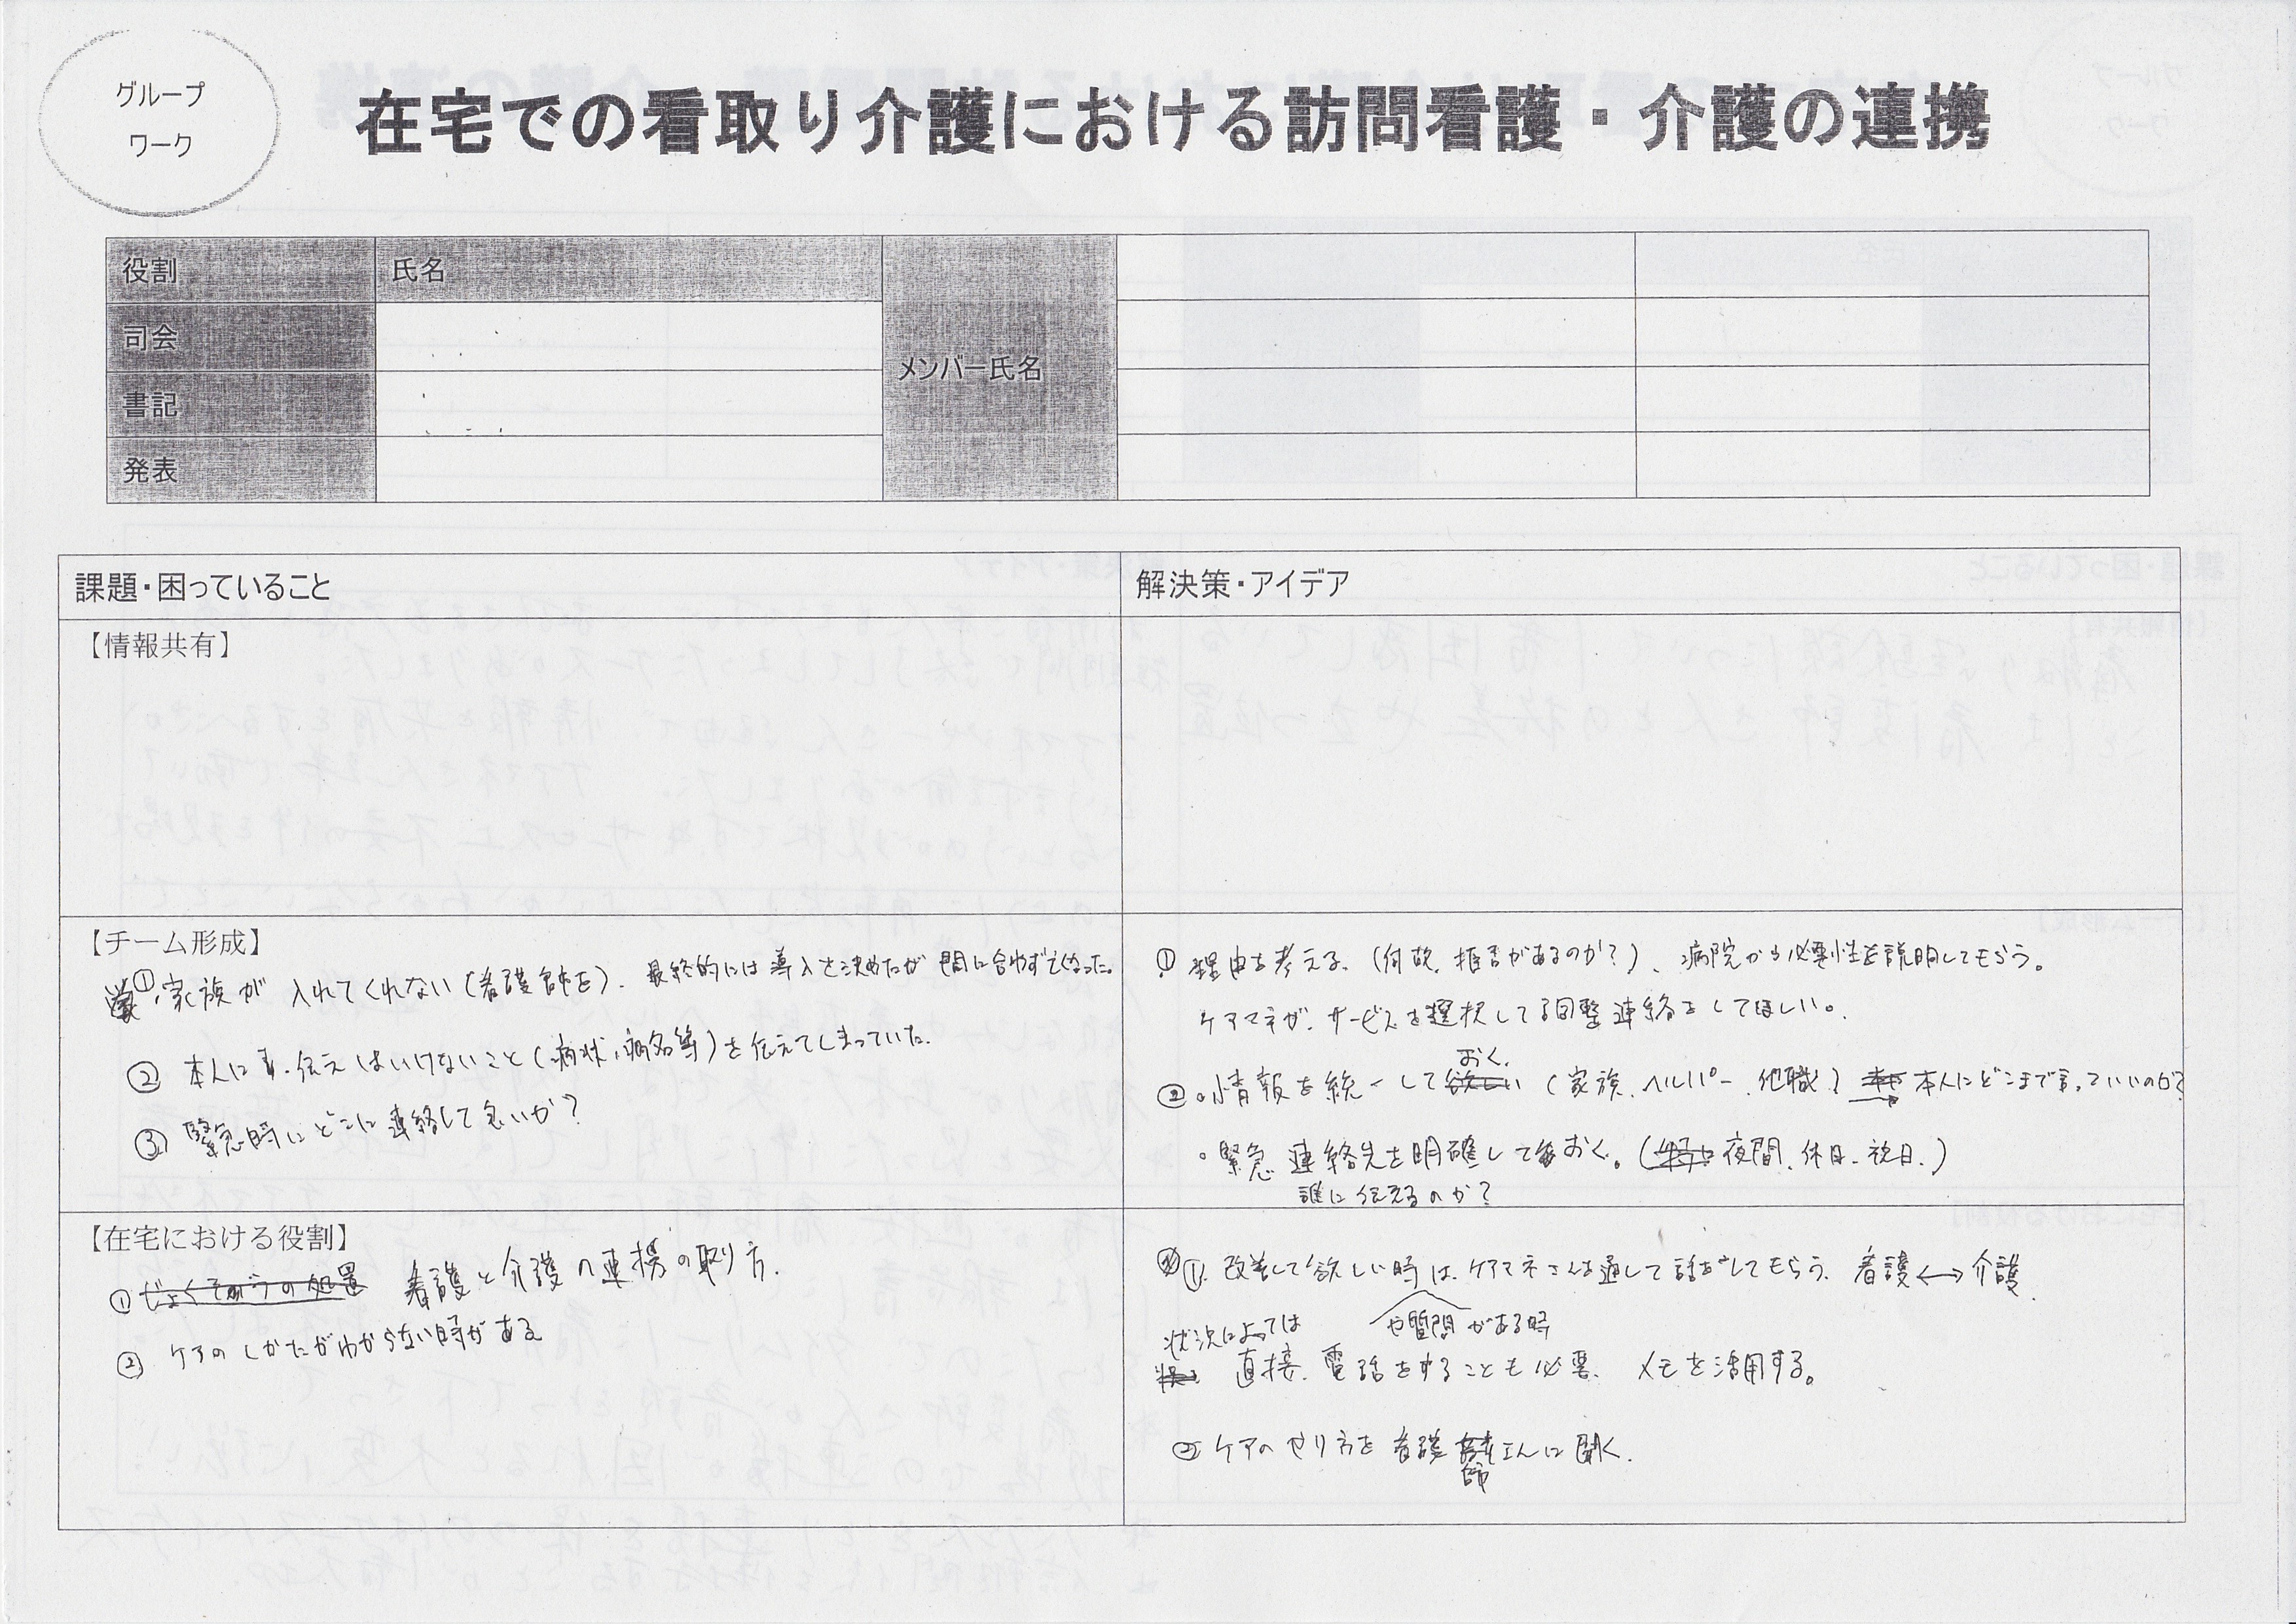 グループ
ワーク
在宅での看取り介護における訪問看護・介護の連携
役割
氏名
メンバー氏名
司会
書記
発表
課題・困っていること
解決策・アイデア
【情報共有】
【チーム形成】
①・家族が 入れてくれない(看護師を)、最終的には導入を決めたが 間に合わず亡くなった。
② 本人に 伝え はいけないこと(病状、病名等)を伝えてしまっていた。
③ 緊急時にどこに連絡して良いか?
① 理由を考える、(何故、拒否があるのか?)、病院から必要性を説明してもらう。
ケアマネが、サービスを選択してる 連絡をしてほしい。
おく。
②・情報を統一して欲しい(家族、ヘルパー、他職) 本人にどこまで言っていいのか?
・緊急 連絡先を明確しておく。( 夜間、休日、祝日、)
誰に伝えるのか?
【在宅における役割】
① じょくそうの処置 看護と介護の連携の取り方.
② ケアのしかたがわからない時がある
① 改善して欲しい時は、ケアマネさんを通して話をしてもらう、看護⟷介護.
や質問がある時
状況によっては
直接、電話をすることも必要、メモを活用する。
② ケアのやり方を看護 さんに聞く.
師